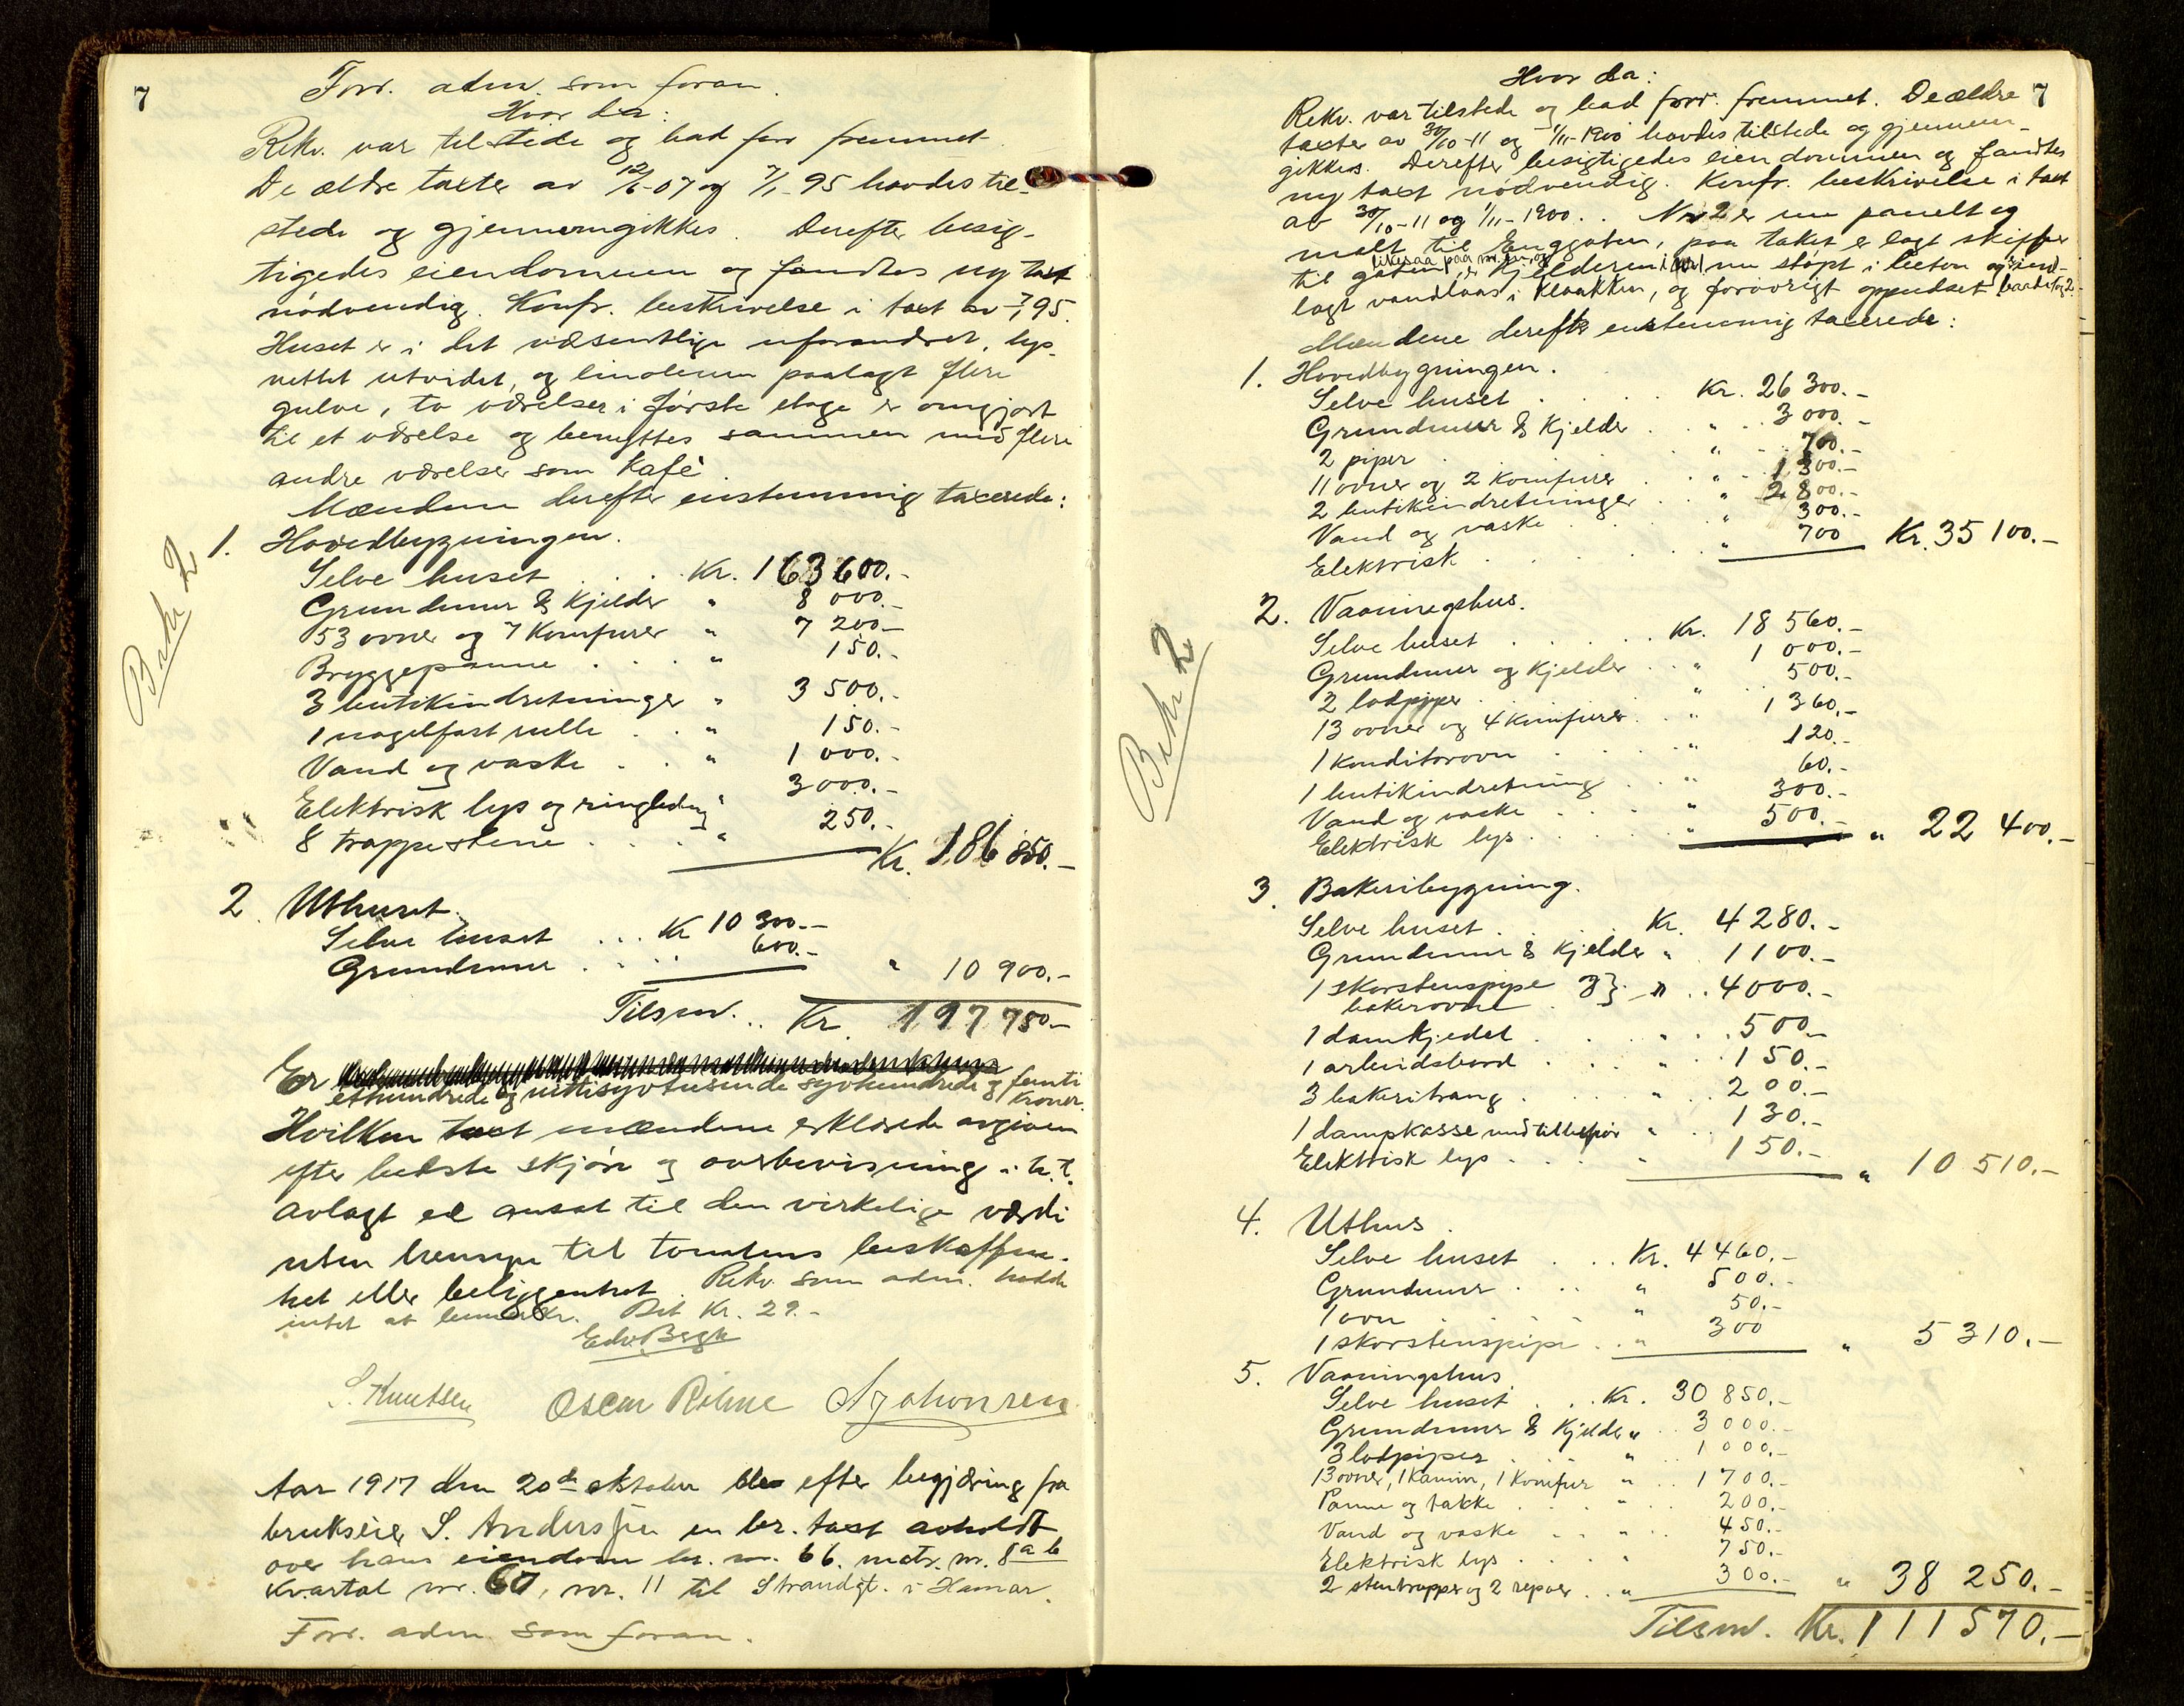 7
Forr. adm. som foran.
Hvor da:
Rekv. var tilstede og bad forr fremmet.
De ældre taxter av 12/6-07 og 7/1-95 havdes til-
stede og gjennemgikkes. Derefter besig-
tigedes eiendommen og fandtes ny taxt
nødvendig. Konfr. beskrivelse i taxt av 7/1 95.
Huset er i det væsentlige uforandret, lys-
nettet utvidet, og linoleum paalagt flere
gulve, to værelser i første etage er omgjort
til et værelse og benyttes sammen med flere
andre værelser som Kafè.
Mændene derefter enstemmig taxerede:
Bekr 2
1. Hovedbygningen.
Selve huset . . . Kr. 163 600.-
Grundmur & Kjelder " 8 000.-
53 ovner og 7 Komfurer " 7 200-
Bryggepanne . . . " 150.-
3 butikindretninger " 3 500.-
1 nagelfast rulle . . " 150.-
Vand og vaske . . " 1 000.-
Elektrisk lys og ringledning " 3000.-
8 trappestene . . . . " 250.-
Kr. 186 850.-
2. Uthuset.
Selve huset ... Kr 10 300.-
Grundmur . . . . 600.-
" 10 900.-
Tilsm. .. Kr. 197 750-
Er
ethundrede og nittisyvtusinde syvhundrede og femti kroner.
Hvilken taxt mændene erklærede avgiven
efter bedste skjøn og overbevisning i h.t.
avlagt ed ansat til den virkelige værdi
uten hensyn til tomtens beskaffen-
het eller beliggenhet. Rekv. som adm. hadde
intet at bemerke. Bet Kr. 29.-
Edv. Bergh
S. Knutsen Oscar Röhne A Johansen
Aar 1917 den 20de oktober blev efter begjæring fra
brukseier S. Andersen en br. taxt avholdt
over hans eiendom br. nr. 66. matr. nr. 8 a b
Kvartal nr. 60, nr. 11 til Strandgt. i Hamar.
Forr. adm. som foran.
7
Hvor da:
Rekv. var tilstede og bad forr. fremmet. De ældre
taxter av 30/10-11 og 1/11-1900 havdes tilstede og gjennem-
gikkes. Derefter besigtigedes eiendommen og fandtes
ny taxt nødvendig. Konfr. beskrivelse i taxt
av 30/10-11 og 1/11-1900. . Nr 2 er nu panelt og
malt til Enggaten, paa taket er lagt skiffer
likesaa paa nr.
til gaten, er Kjelderen nu støpt i beton og ind-
lagt vandlaas i Kloakken, og forøvrigt oppudset baade 1 og 2.
Mændene derefter enstemmig taxerede:
1. Hovedbygningen.
Selve huset . . . . Kr. 26 300.-
Grundmur & Kjelder . . " . 3 000.-
2 piper . " . . 700.-
11 ovner og 2 Komfurer . . " . 1 300.-
2 butikindretninger . . " 2 800.-
Vand og vaske . . . . " 300.-
Elektrisk . . . . . . " 700 Kr. 35 100.-
Bekr 2
2. Vaaningshus.
Selve huset . . . . . Kr. 18 560.-
Grundmur og Kjelder . . " 1 000.-
2 lodpiper . . . " . . 500.-
13 ovner og 4 Komfurer . . " 1 360.-
1 konditorovn . . . . " 120.-
1 butikindretning . . " 60.-
Vand og vaske . . . . " 300.-
Elektrisk lys . . . . . " 500.- " 22 400.-
3. Bakeribygning.
Selve huset . . . . Kr. 4 280.-
Grundmur & Kjelder " . 1 100.-
1 skorstenspipe & } " . . 4000.-
bakerovne
1 damkjedel . . . . " . . 500-
1 arbeidsbord . . . . " . . 150.-
3 bakeritraug . . . . " . . 200.-
1 dampkasse med tilbehør " . . 130.-
Elektrisk lys . . . . " 150.- " 10 510.-
4. Uthus.
Selve huset . . . Kr. 4 460.-
Grundmur . . . . " 500.-
1 ovn . . . . " 50.-
1 skorstenspipe . . " 300 " 5 310.-
5. Vaaningshus
Selve huset . . . Kr. 30 850.-
Grundmur & Kjelder " . . 3 000.-
3 lodpiper . . . . " 1 000.-
13 ovner, 1 Kamin, 1 Komfur " . . 1 700.-
Panne og takke . . . . " . . 200.-
Vand og vaske . . . " . . 450.-
Elektrisk lys . . . . " 750.-
2 stentrapper og 2 repoer . . " 300.- " 38 250.-
Tilsm. Kr. 111 570.-